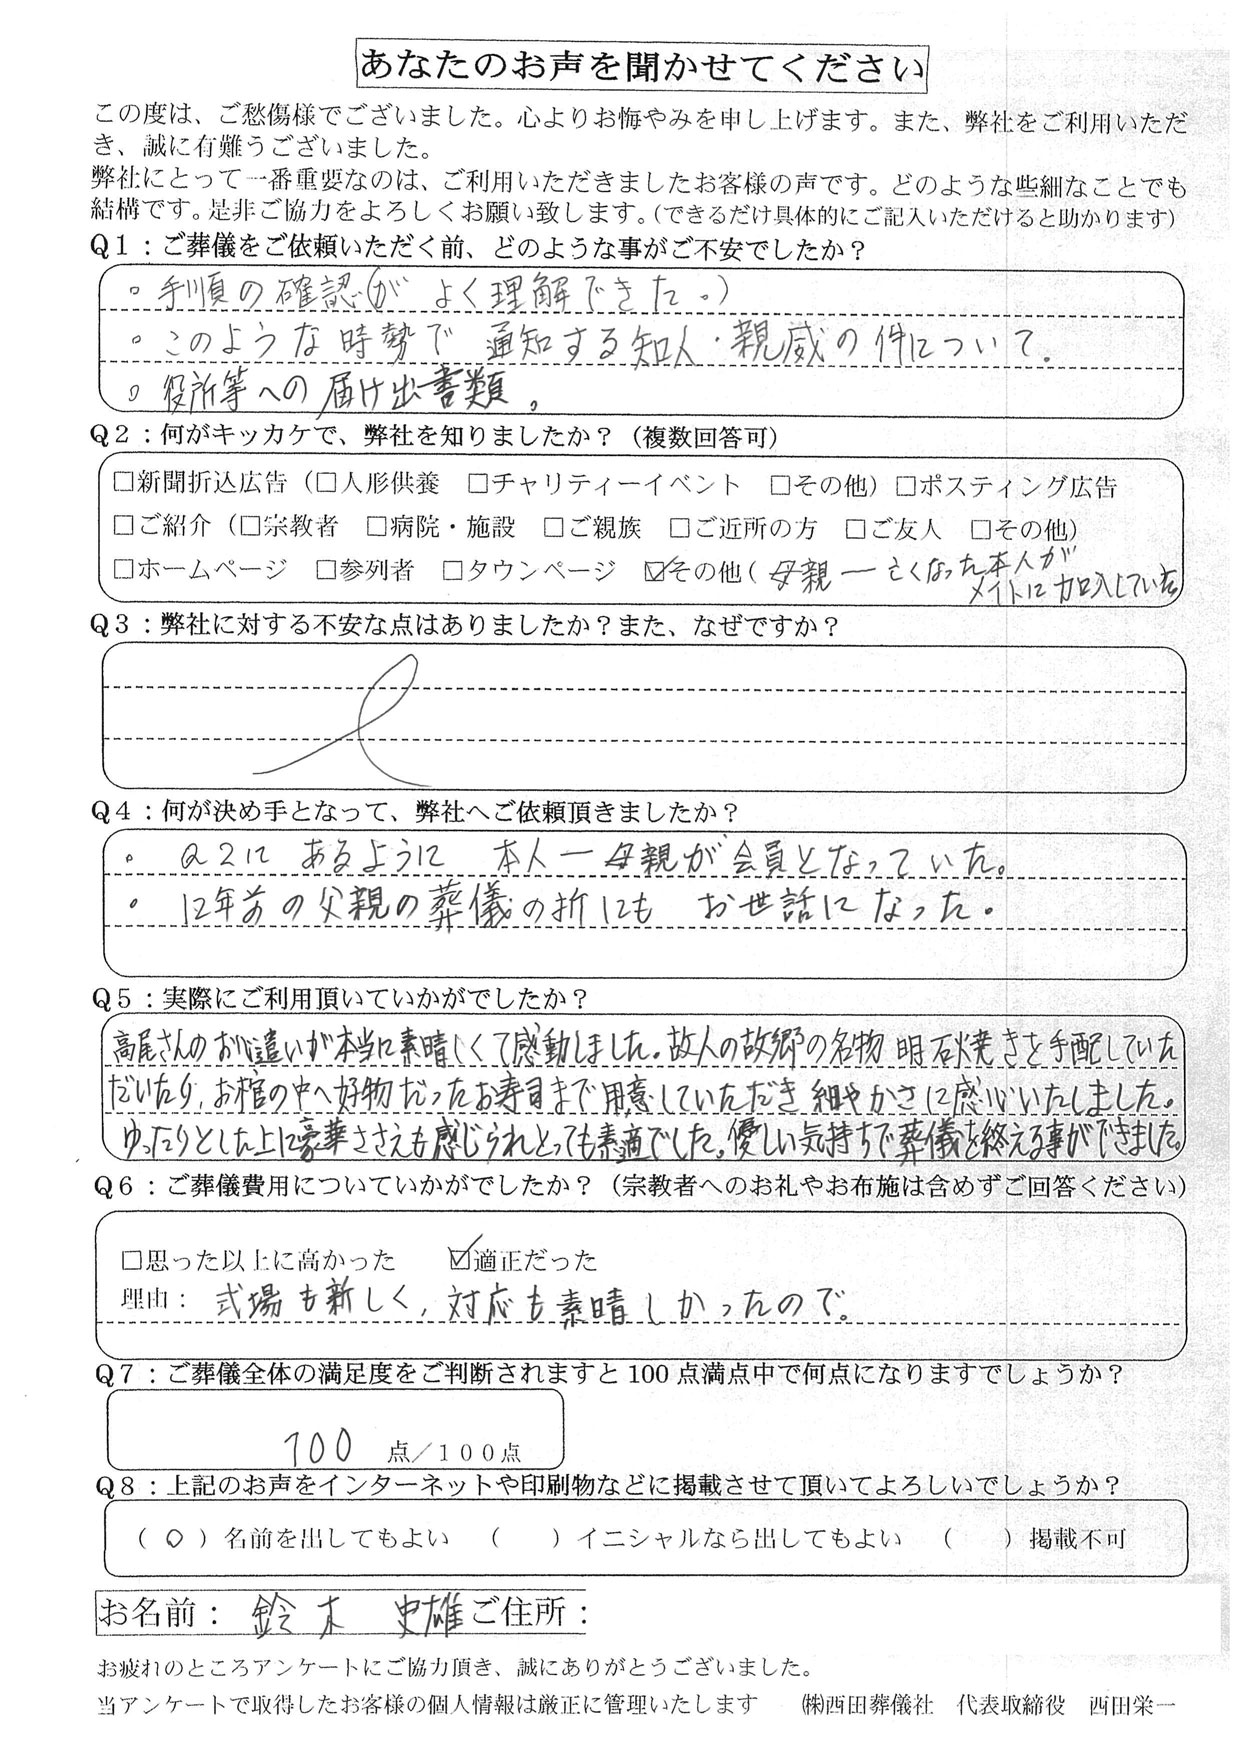 あなたのお声を聞かせてください
この度は、ご愁傷様でございました。心よりお悔やみを申し上げます。また、弊社をご利用いただ
き、誠に有難うございました。
弊社にとって一番重要なのは、ご利用いただきましたお客様の声です。どのような些細なことでも
結構です。是非ご協力をよろしくお願い致します。（できるだけ具体的にご記入いただけると助かります）
Q1：ご葬儀をご依頼いただく前、どのような事がご不安でしたか？
。手順の確認(が よく理解できた。)
。このような時勢で 通知する知人・親戚の件について。
。役所等への届け出書類。
Q2：何がキッカケで、弊社を知りましたか？（複数回答可）
□新聞折込広告（□人形供養 □チャリティーイベント □その他）□ポスティング広告
□ご紹介（□宗教者 □病院・施設 □ご親族 □ご近所の方 □ご友人 □その他）
□ホームページ □参列者 □タウンページ ☑その他（ 母親ー亡くなった本人が
メイトに加入していた
Q3：弊社に対する不安な点はありましたか？また、なぜですか？
Q4：何が決め手となって、弊社へご依頼頂きましたか？
。Q2に あるように 本人ー母親が会員となっていた。
。12年前の父親の葬儀の折にも お世話になった。
Q5：実際にご利用頂いていかがでしたか？
高尾さんのお心遣いが本当に素晴しくて感動しました。故人の故郷の名物 明石焼きを手配していた
だいたり、お棺の中へ好物だったお寿司まで用意していただき細やかさに感心いたしました。
ゆったりとした上に豪華ささえも感じられとっても素適でした。優しい気持ちで葬儀を終える事ができました。
Q6：ご葬儀費用についていかがでしたか？（宗教者へのお礼やお布施は含めずご回答ください）
□思った以上に高かった ☑適正だった
理由： 式場も新しく、対応も素晴しかったので。
Q7：ご葬儀全体の満足度をご判断されますと100点満点中で何点になりますでしょうか？
100 点／100点
Q8：上記のお声をインターネットや印刷物などに掲載させて頂いてよろしいでしょうか？
（ ○ ）名前を出してもよい （ ）イニシャルなら出してもよい （ ）掲載不可
お名前： 鈴木 史雄 ご住所：
お疲れのところアンケートにご協力頂き、誠にありがとうございました。
当アンケートで取得したお客様の個人情報は厳正に管理いたします ㈱西田葬儀社 代表取締役 西田栄一